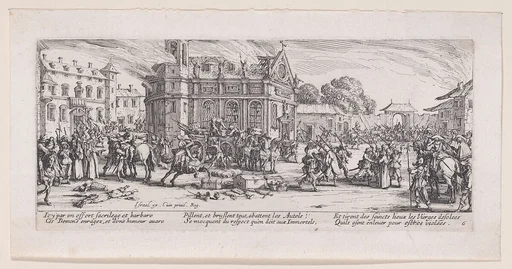 Israel ex. Cum privil. Reg.
Icy par un effort sacrilege et barbare
Ces Demons enragez, et d'une humeur avare
Pillent, et bruslent tout, abattent les Autels;
Se mocquent du respect qu'on doit aux Immortels,
Et tirent des saincts lieux les Vierges desolées
Qu'ils osent enlever pour estre violées.
6